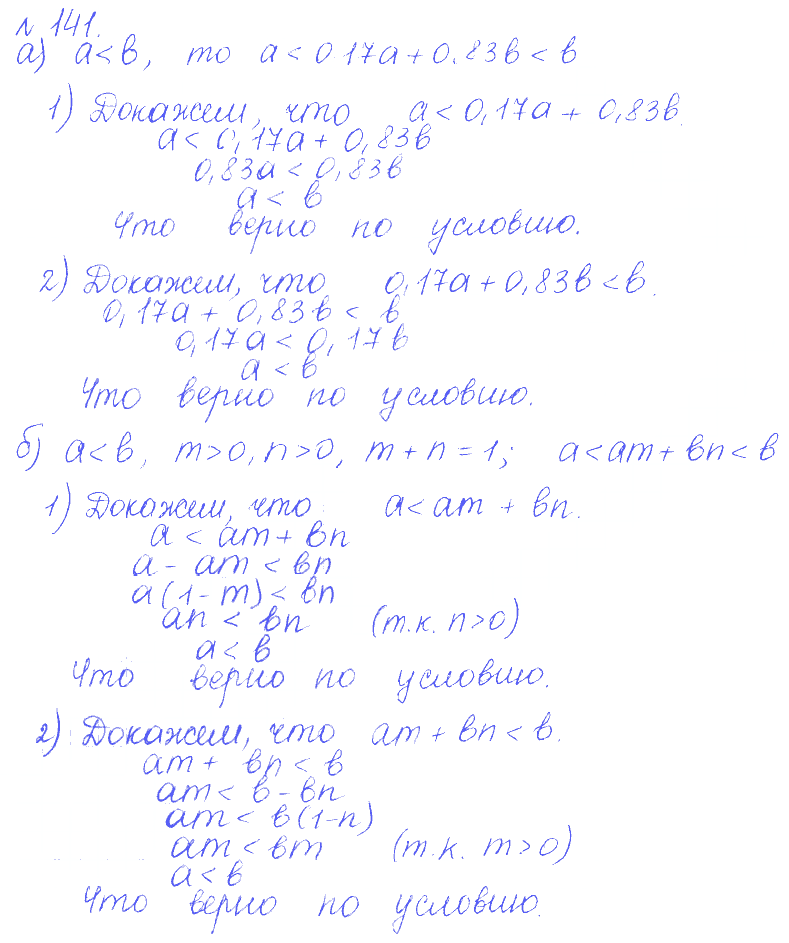 № 141.
а) a < b, то a < 0 17a + 0.83b < b
1) Докажем, что a < 0,17a + 0,83b.
a < 0,17a + 0,83b
0,83a < 0,83b
a < b
Что верно по условию.
2) Докажем, что 0,17a + 0,83b < b.
0,17a + 0,83b < b
0,17a < 0,17b
a < b
Что верно по условию.
б) a < b, m > 0, n > 0, m + n = 1; a < am + bn < b
1) Докажем, что a < am + bn.
a < am + bn
a - am < bn
a(1 - m) < bn
an < bn (т.к. n > 0)
a < b
Что верно по условию.
2) Докажем, что am + bn < b.
am + bn < b
am < b - bn
am < b(1-n)
am < bm (т.к. m > 0)
a < b
Что верно по условию.